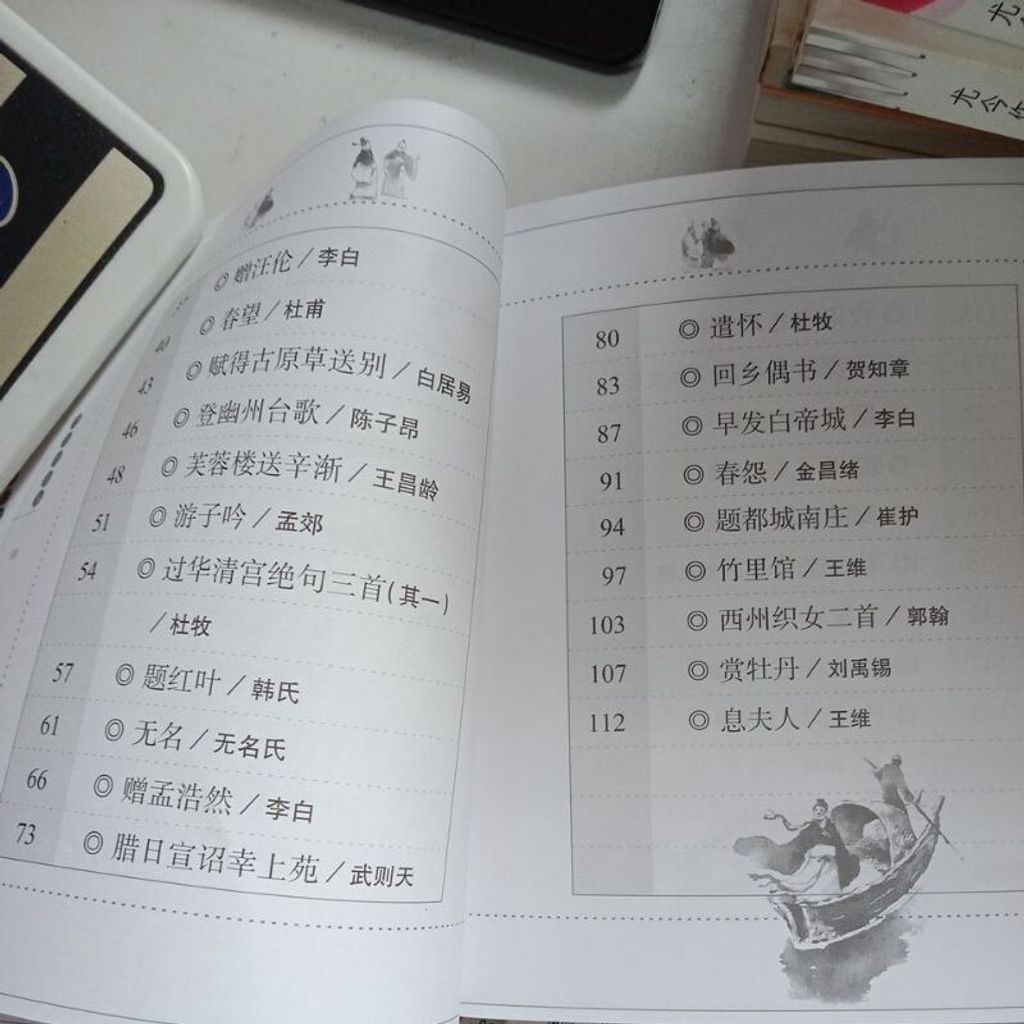 尤
尤今
◎ 赠汪伦 / 李白
40 ◎ 春望 / 杜甫
43 ◎ 赋得古原草送别 / 白居易
46 ◎ 登幽州台歌 / 陈子昂
48 ◎ 芙蓉楼送辛渐 / 王昌龄
51 ◎ 游子吟 / 孟郊
54 ◎ 过华清宫绝句三首(其一)
/ 杜牧
57 ◎ 题红叶 / 韩氏
61 ◎ 无名 / 无名氏
66 ◎ 赠孟浩然 / 李白
73 ◎ 腊日宣诏幸上苑 / 武则天
80 ◎ 遣怀 / 杜牧
83 ◎ 回乡偶书 / 贺知章
87 ◎ 早发白帝城 / 李白
91 ◎ 春怨 / 金昌绪
94 ◎ 题都城南庄 / 崔护
97 ◎ 竹里馆 / 王维
103 ◎ 西州织女二首 / 郭翰
107 ◎ 赏牡丹 / 刘禹锡
112 ◎ 息夫人 / 王维